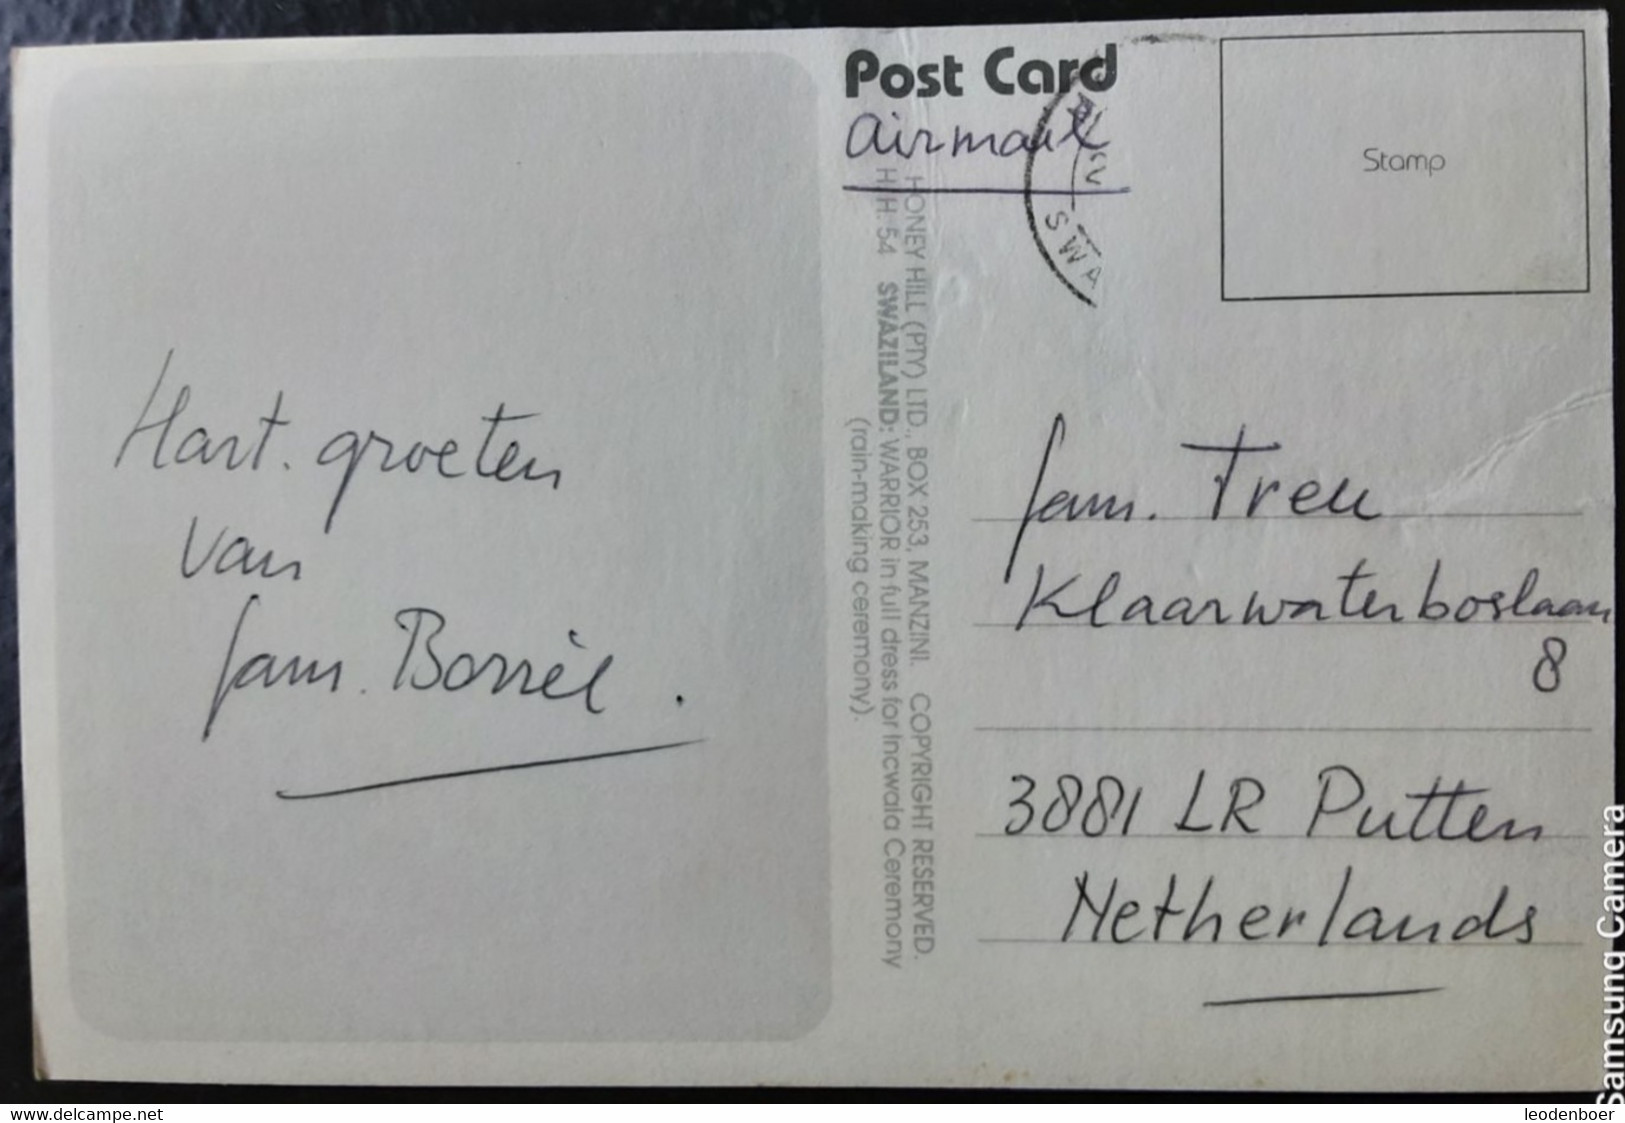 Post Card
Airmail
Stamp
SWA
H.H. 54 SWAZILAND: WARRIOR in full dress for Incwala Ceremony
(rain-making ceremony).
HONEY HILL (PTY) LTD., BOX 253, MANZINI. COPYRIGHT RESERVED.
Hart. groeten
van
fam. Borrèl.
fam. Treu
Klaarwaterboslaan
8
3881 LR Putten
Netherlands
Samsung Camera
www.delcampe.net
leodenboer